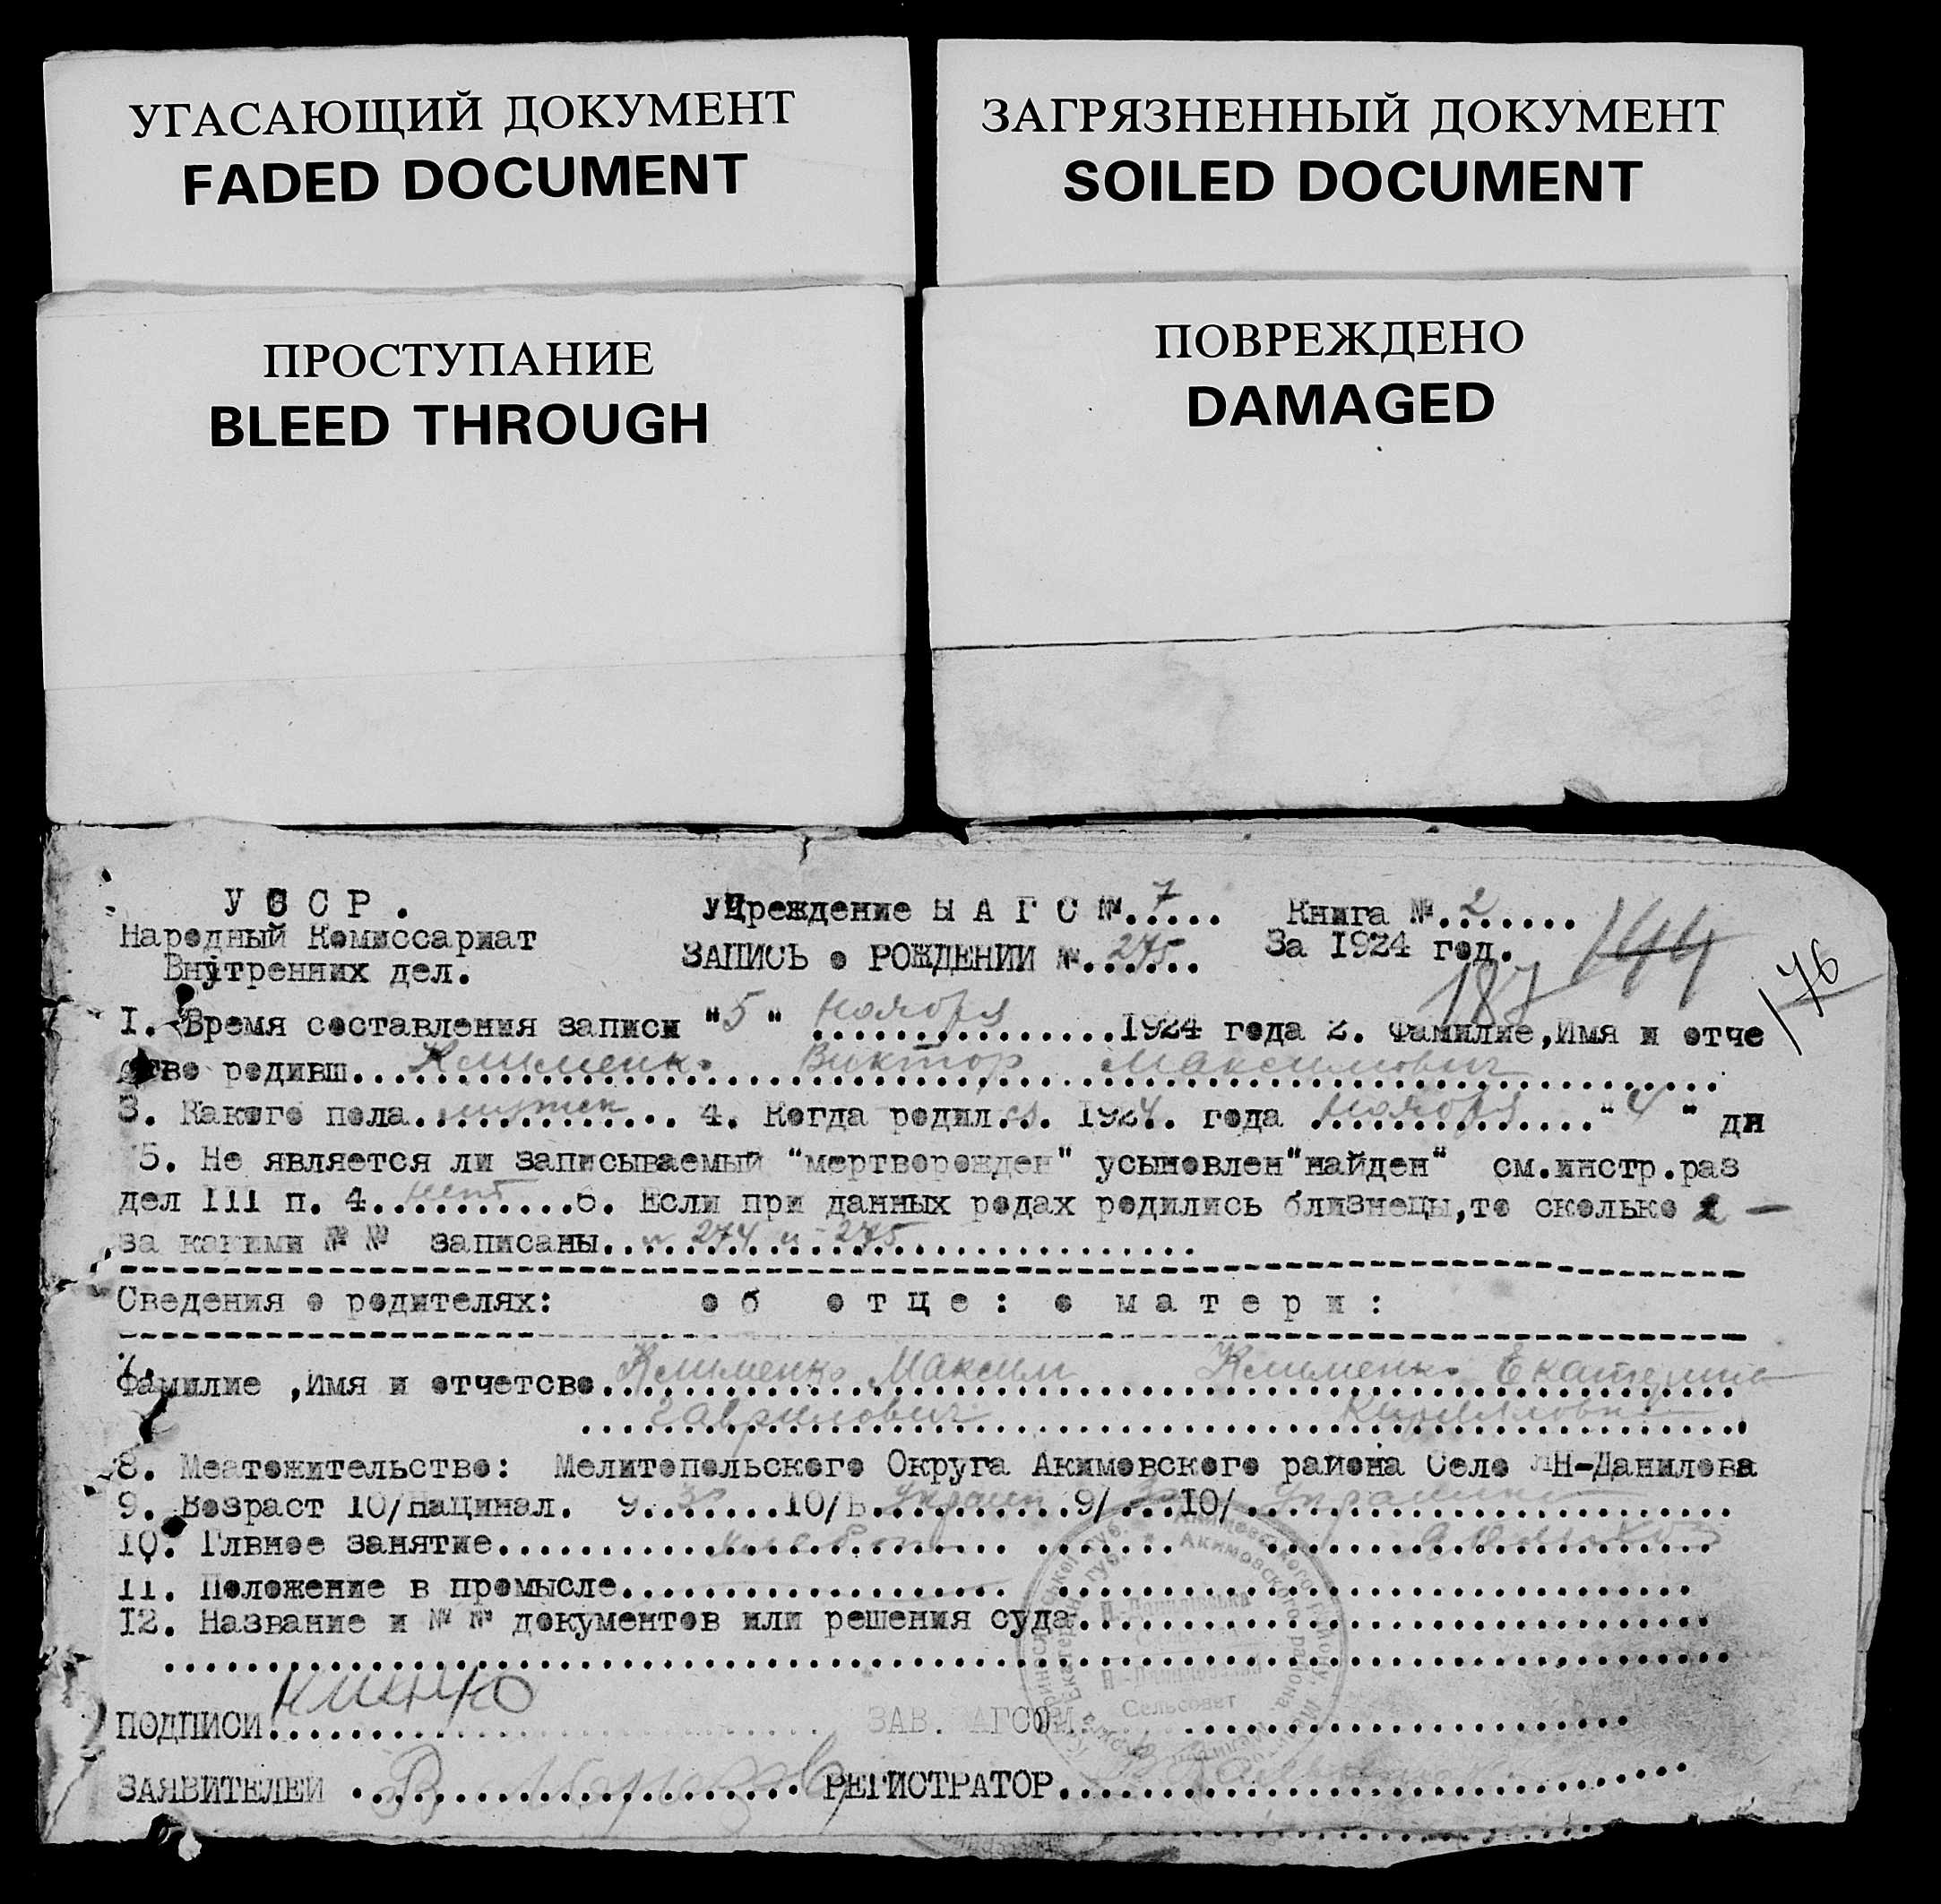 УГАСАЮЩИЙ ДОКУМЕНТ
FADED DOCUMENT
ЗАГРЯЗНЕННЫЙ ДОКУМЕНТ
SOILED DOCUMENT
ПРОСТУПАНИЕ
BLEED THROUGH
ПОВРЕЖДЕНО
DAMAGED
УССР. Учреждение Ы А Г С №. 7 Книга №. 2
Народный Комиссариат ЗАПИСЬ о РОЖДЕНИИ №. 275 За 1924 год. 144
Внітренних дел. 187 176
I. Время составления записи "5" Ноября 1924 года 2. Фамилие,Имя и отче
ство родивш. Клименко Виктор Максимович
3. Какого пола. мужск 4. Когда родилс. 1924. года Ноября "4" дн
5. Не является ли записываемый "мертворожден" усыновлен"найден" см.инстр.раз
дел III п. 4. нет 6. Если при данных родах родились близнецы,то сколько 2 —
за какими №№ записаны. 274 и 275
Сведения о родителях: об отце: о матери:
7.
Фамилие ,Имя и отчетсво. Клименко Максим Клименко Екатерина
Гаврилович Кирилловна
8. Меатожительство: Мелитопольского Округа Акимовского района Село Н-Данилова
9. Возраст 10/Нацинал. 9. 30 10/ Украин 9/ 10/ Украинка
10. Глвное занятие.
11. Положение в промысле.
12. Название и №№ документов или решения суда.
Акимовского района
Сельсовет
ПОДПИСИ ЗАВ. АГСОМ.
ЗАЯВИТЕЛЕЙ РЕГИСТРАТОР